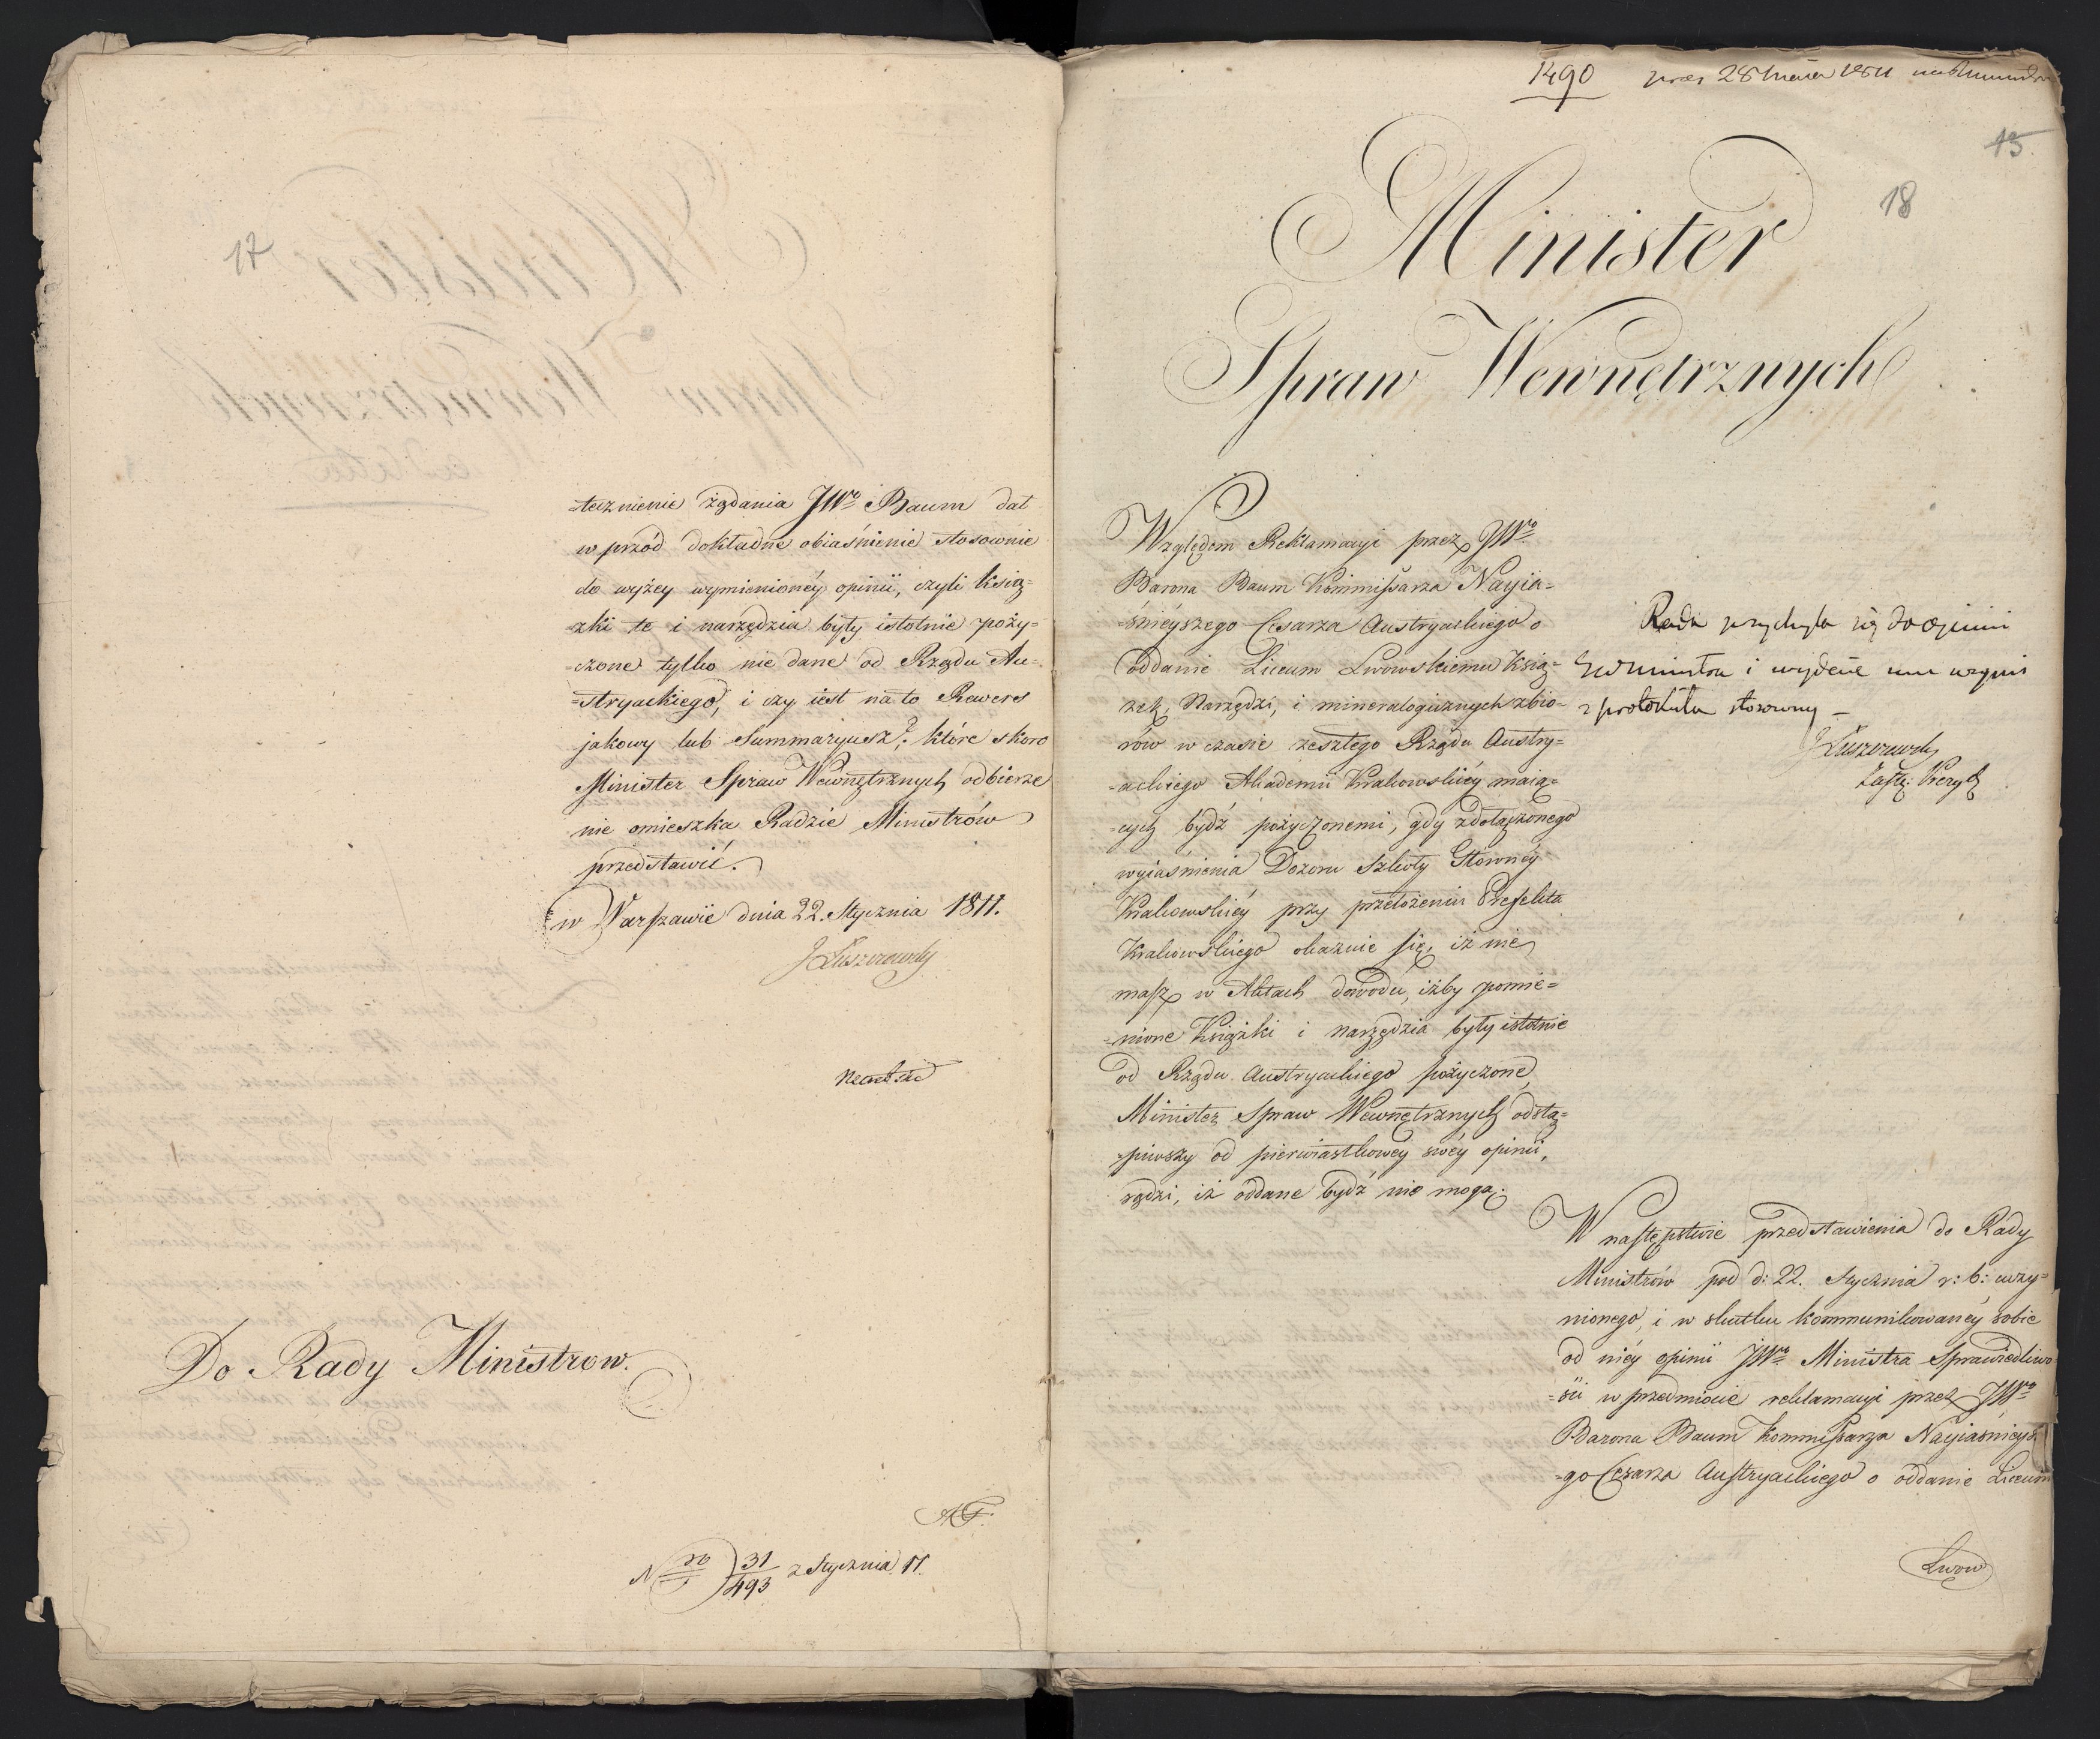 17
-tecznienie żądania JWo Baum dał
w przód dokładne obiaśnienie stosownie
do wyżey wymienionéy opinii, czyli ksią=
=zki te i narzędzia były istotnie poży=
=czone tylko nie dane od Rządu Au=
=stryackiego, i czy iest na to Rewers
jakowy lub Summaryusz; które skoro
Minister Spraw Wewnętrznych odbierze
nie omieszka Radzie Ministrów
przedstawić.
w Warszawie dnia 22. Stycznia 1811.
J Łuszczewski
Do Rady Ministrow.
N 31/493 z Stycznia 11.
1490 28 1811
15.
18
Minister
Spraw Wewnętrznych
Względem Reklamacyi przez JWo
Barona Baum Kommissarza Nayia=
=śnieyszego Cesarza Austryackiego o
oddanie Liceum Lwowskiemu Ksią=
zek, Narzędzi, i mineralogicznych zbio=
rów w czasie zeszłego Rządu Austry=
=ackiego Akademii Krakowskiéy maią=
=cych bydź pożyczonemi, gdy z dołączonego
wyiaśnienia Dozoru Szkoły Główney
Krakowskiéy przy przełożeniu Prefekta
Krakowskiego okazuie się, iż nie
masz w Aktach dowodu, iżby pomie=
=nione Książki i narzędzia były istotnie
od Rządu Austryackiego pożyczone,
Minister Spraw Wewnętrznych odstą=
=piwszy od pierwiastkowey swéy opinii,
sądzi, iż oddane bydź nie mogą.
Rada przychyla się do opinii
Ministra i wyjdzie
z protokółu stosowny –
J Łuszczewski
W następstwie przedstawienia do Rady
Ministrów pod d: 22. Stycznia r: b: uczy=
nionego, i w skutku kommunikowanéy sobie
od niéy opinii JWo Ministra Sprawiedliwo
=ści w przedmiocie reklamacyi przez JWo
Barona Baum Kommissarza Nayiaśnieysze
=go Cesarza Austryackiego o oddanie Liceum
Lwow